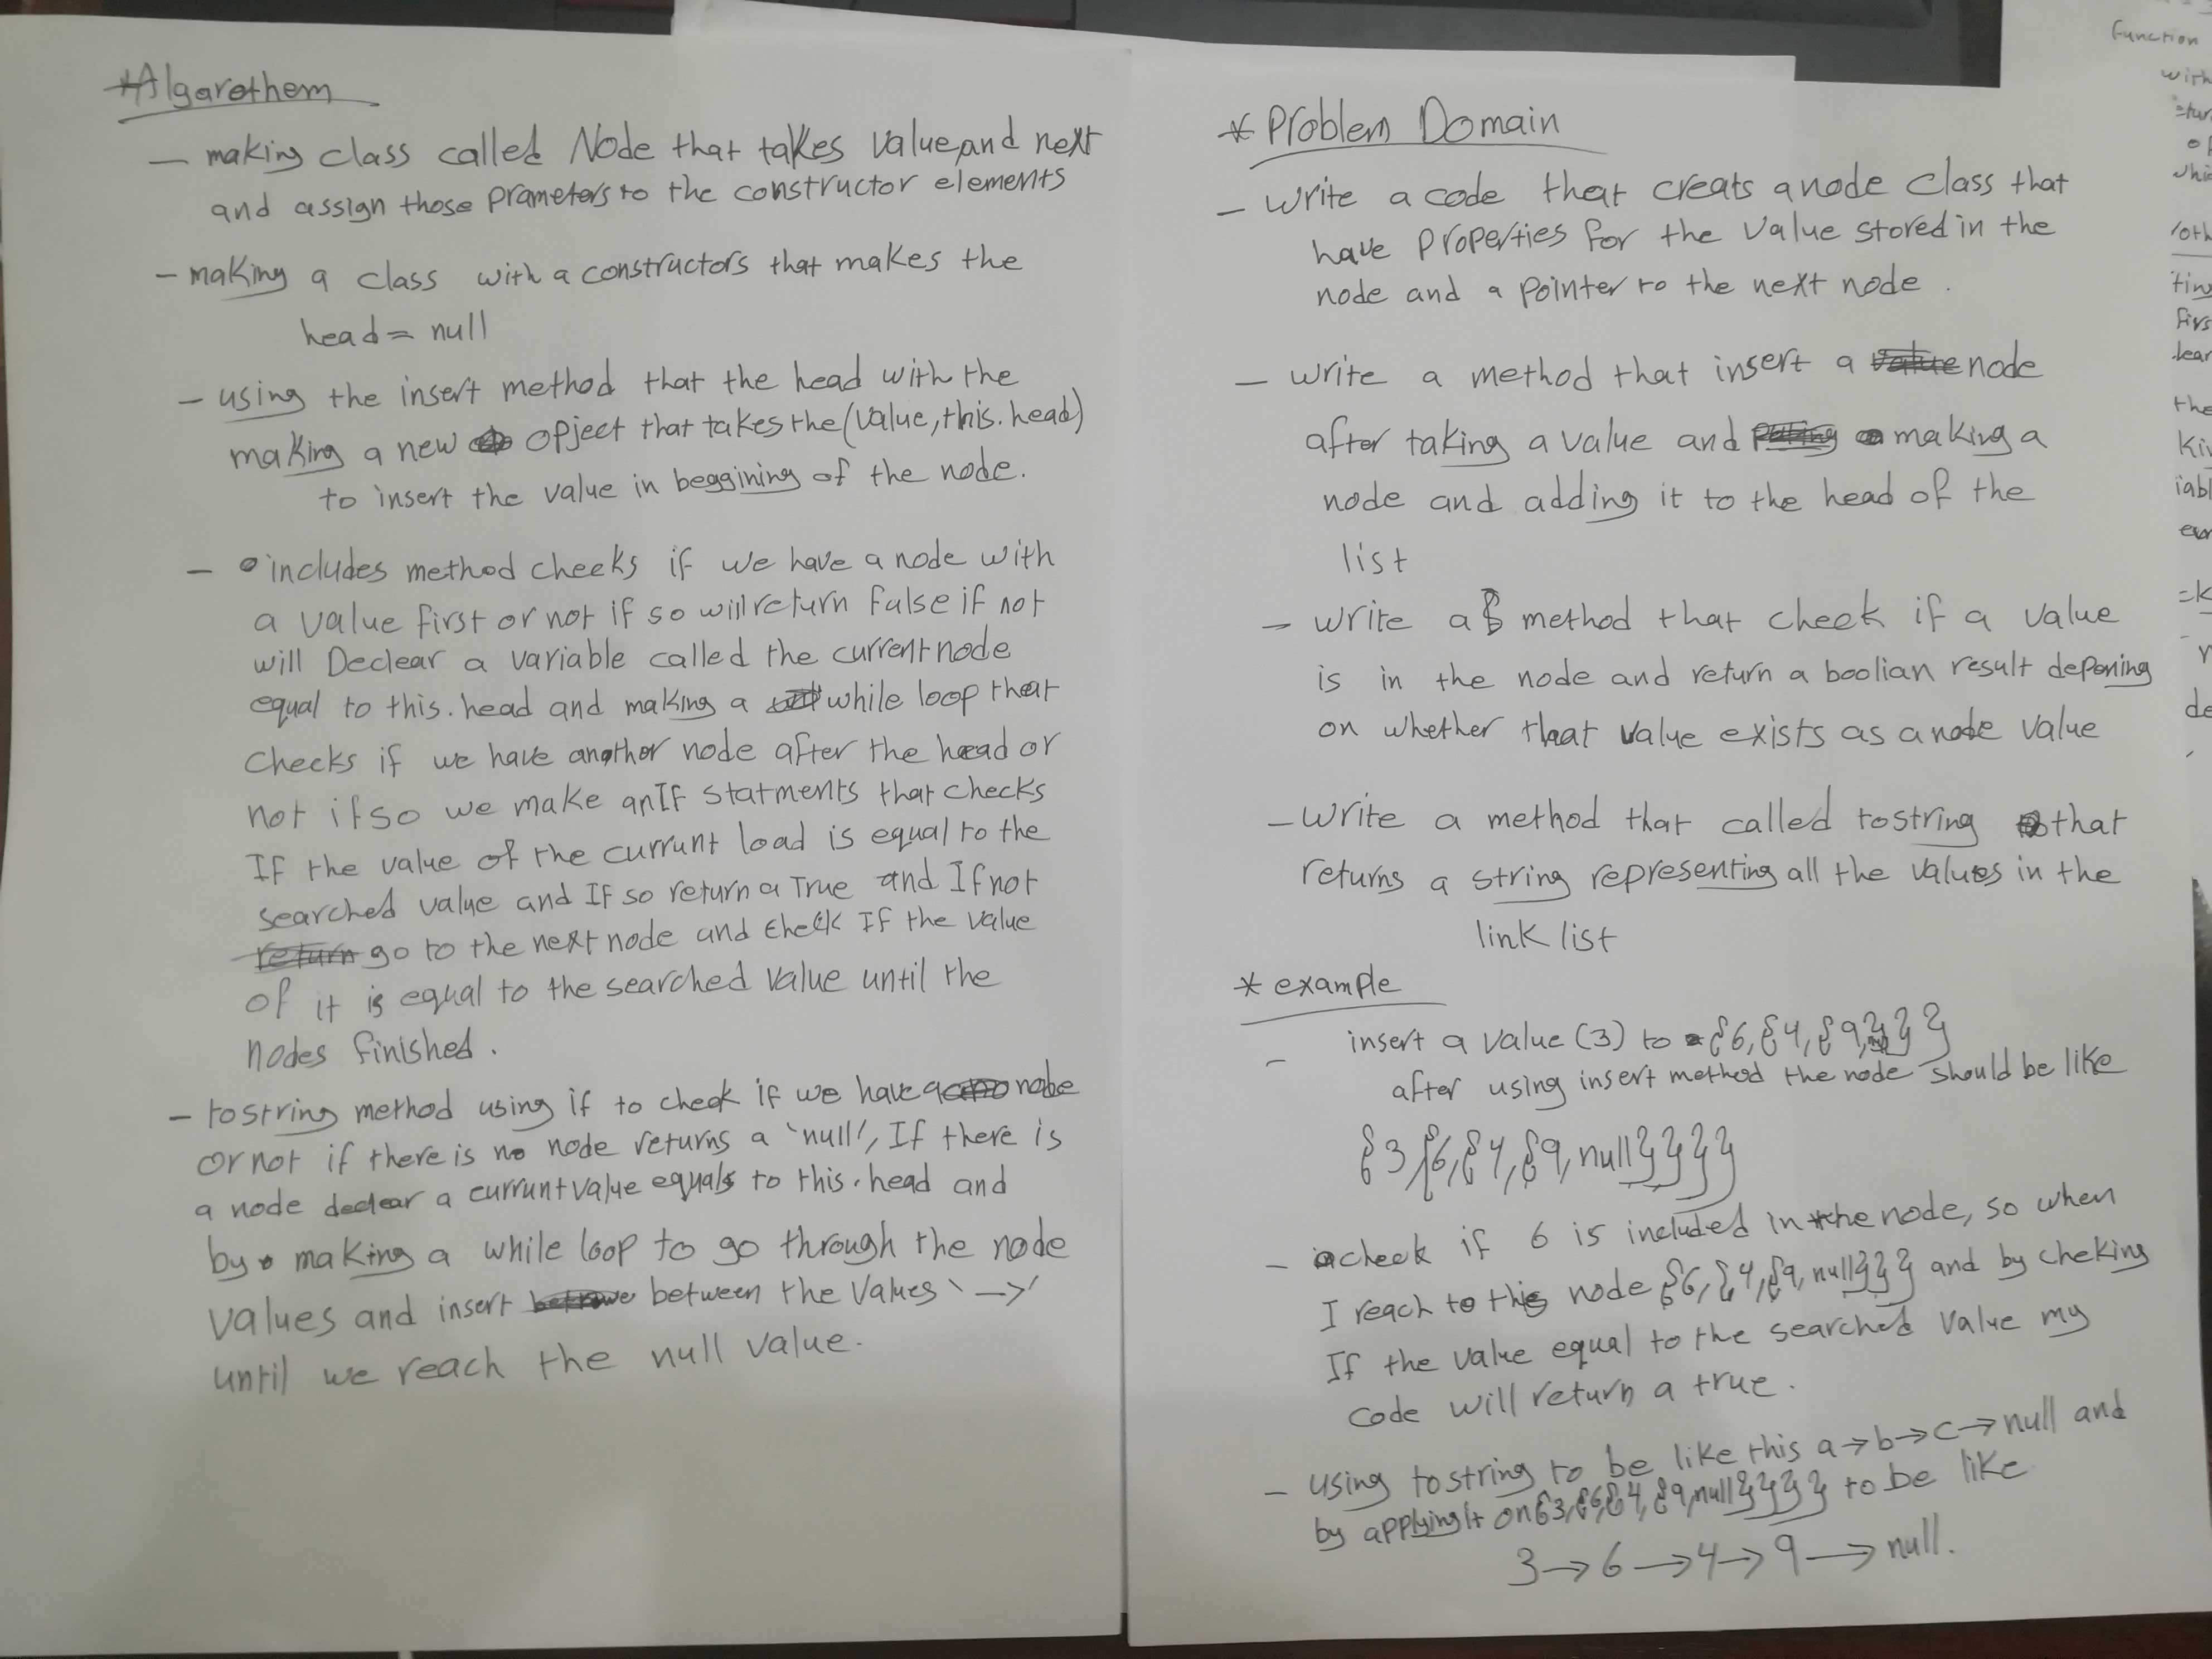 *Algarothem
- making class called Node that takes value and next
and assign those prameters to the constructor elements
- making a class with a constructors that makes the
head = null
- using the insert method that the head with the
making a new opject that takes the (value, this.head)
to insert the value in beggining of the node.
- includes method cheeks if we have a node with
a value first or not if so will return false if not
will Declear a variable called the current node
equal to this.head and making a while loop that
checks if we have another node after the head or
not if so we make an If statments that checks
If the value of the currunt load is equal to the
searched value and If so return a True and If not
go to the next node and check If the value
of it is equal to the searched value until the
nodes finished.
- tostring method using if to check if we have a node
or not if there is no node returns a 'null', If there is
a node declear a currunt value equals to this.head and
by making a while loop to go through the node
values and insert between the values '->'
until we reach the null value.
* Problem Domain
- write a code that creats a node class that
have properties for the value stored in the
node and a pointer to the next node.
- write a method that insert a node
after taking a value and making a
node and adding it to the head of the
list
- write a method that cheek if a value
is in the node and return a boolian result depening
on whether that value exists as a node value
- write a method that called tostring that
returns a string representing all the values in the
link list
* example
- insert a value (3) to {6,{4,{9, }}}
after using insert method the node should be like
{3,{6,{4,{9,null}}}}
- cheek if 6 is included in the node, so when
I reach to this node {6,{4,{9,null}}} and by cheking
If the value equal to the searched value my
code will return a true.
- using tostring to be like this a->b->c->null and
by applying it on {3,{6,{4,{9,null}}}} to be like
3->6->4->9->null.
function
with